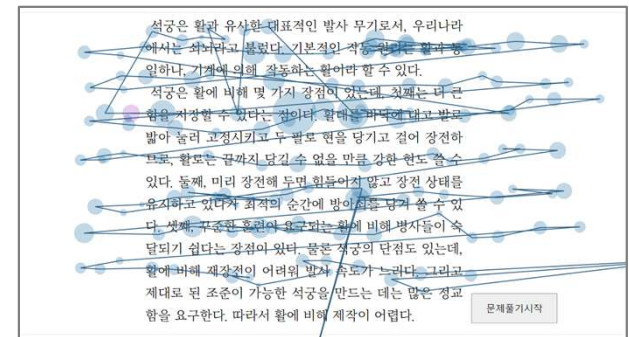 석궁은 활과 유사한 대표적인 발사 무기로서, 우리나라
에서는 쇠뇌라고 불렀다. 기본적인 작동 원리는 활과 동
일하나, 기계에 의해 작동하는 활이라 할 수 있다.
석궁은 활에 비해 몇 가지 장점이 있는데, 첫째는 더 큰
힘을 저장할 수 있다는 점이다. 활대를 바닥에 대고 발로
밟아 눌러 고정시키고 두 팔로 현을 당기고 걸어 장전하
므로, 활로는 끝까지 당길 수 없을 만큼 강한 현도 쓸 수
있다. 둘째, 미리 장전해 두면 힘들이지 않고 장전 상태를
유지하고 있다가 최적의 순간에 방아쇠를 당겨 쓸 수 있
다. 셋째, 꾸준한 훈련이 요구되는 활에 비해 병사들이 숙
달되기 쉽다는 장점이 있다. 물론 석궁의 단점도 있는데,
활에 비해 재장전이 어려워 발사 속도가 느리다. 그리고
제대로 된 조준이 가능한 석궁을 만드는 데는 많은 정교
함을 요구한다. 따라서 활에 비해 제작이 어렵다.
문제풀기시작